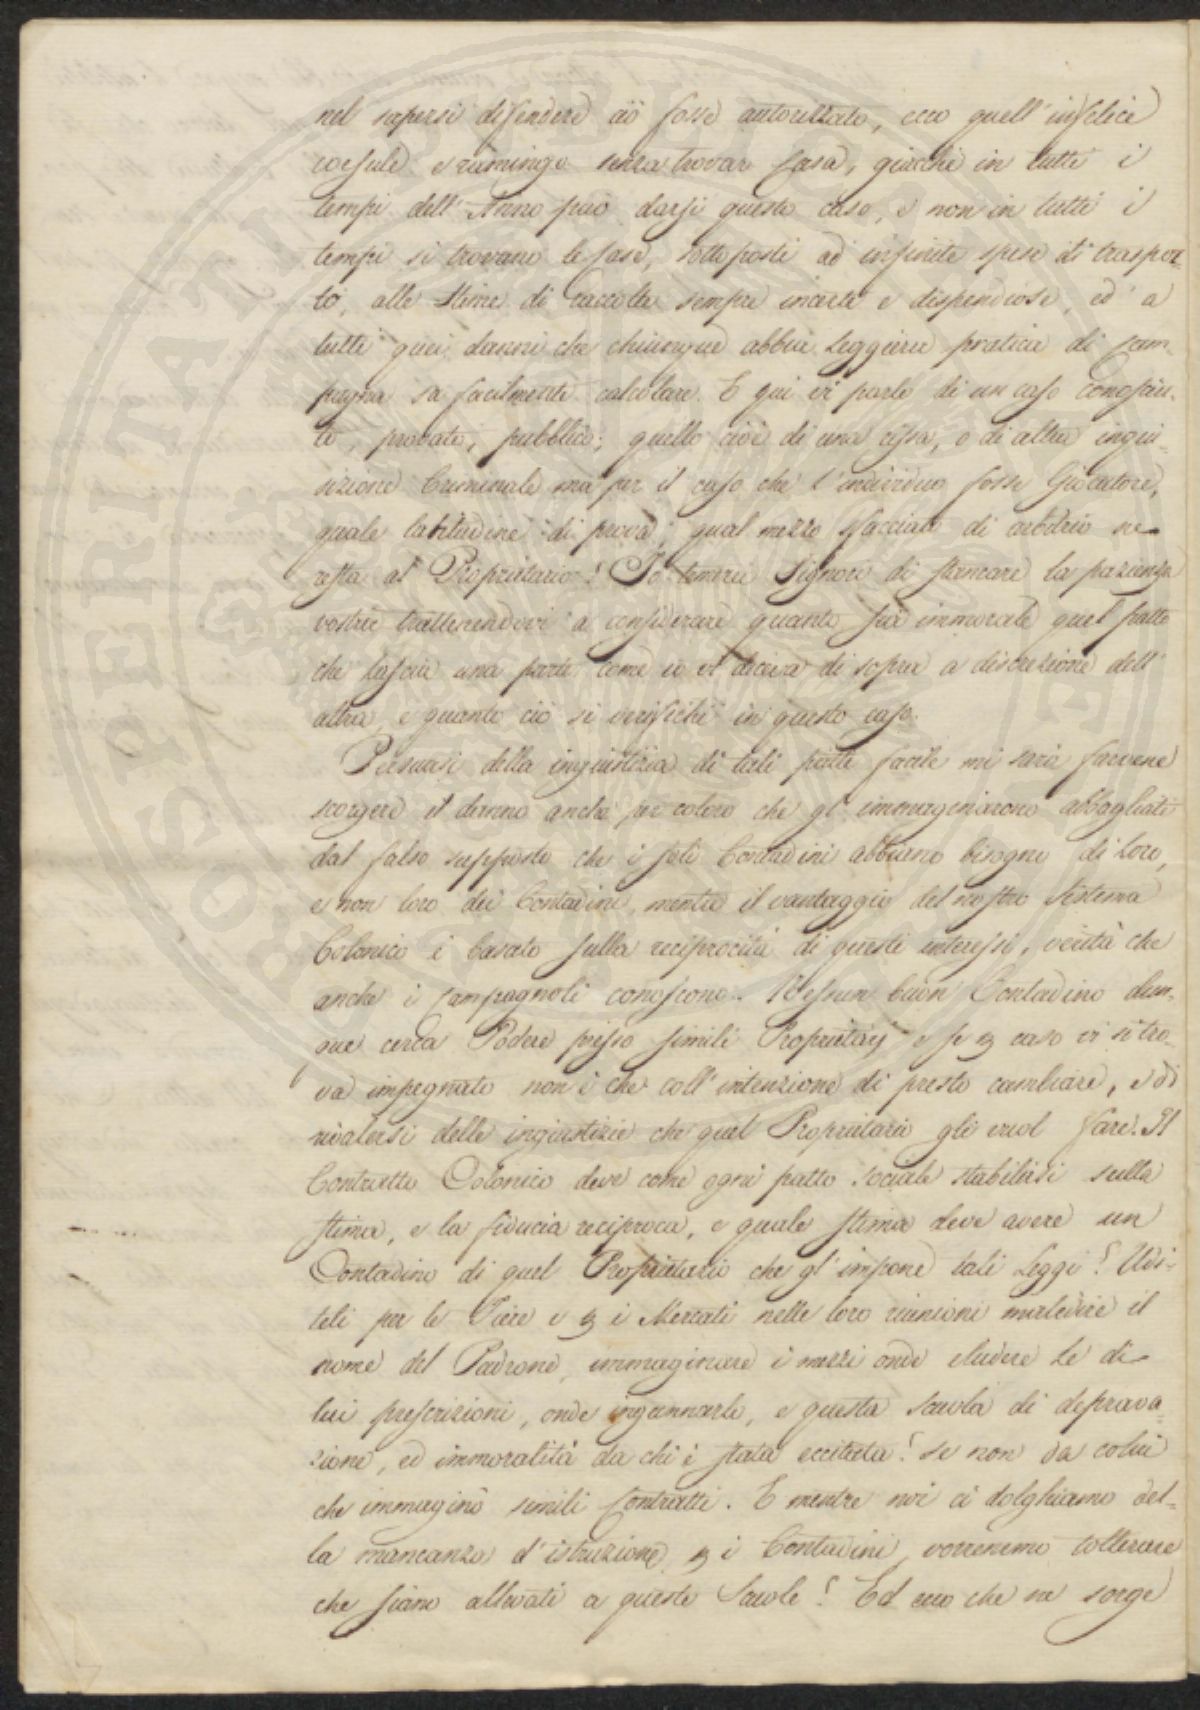 nel sapersi difendere ciò fosse autorizzato, ecco quell'infelice
coesule e ramingo senza trovar Casa, giacchè in tutti i
tempi dell'Anno può darsi questo caso, e non in tutti i
tempi si trovano le Case, sottoposti ad infinite spese di traspor-
to, alle Stime di raccolte sempre incerte e dispendiose, ed a
tutti quei danni che chiunque abbia leggiera pratica di Cam-
pagna sa facilmente calcolare. E qui vi parlo di un caso conosciu-
to, provato, pubblico; quello cioè di una rissa, o di altra inqui-
sizione Criminale ma per il caso che l'individuo fosse Giocatore,
quale latitudine di prova; qual mezzo sfacciato di arbitrio ne
resta al Proprietario! Io temerei Signori di stancare la pazienza
vostra trattenendovi a considerare quanto sia immorale quel patto
che lascia una parte come io vi diceva di sopra a discrezione dell'
altra, e quanto ciò si verifichi in questo caso.
Persuasi della ingiustizia di tali patti facile mi sarà farvene
scorgere il danno anche per coloro che gl'immaginarono abbagliati
dal falso supposto che i soli Contadini abbiano bisogno di loro,
e non loro dei Contadini, mentre il vantaggio del nostro Sistema
Colonico è basato sulla reciprocità di questi interessi, verità che
anche i Campagnoli conoscono. Nessun buon Contadino dun-
que cerca Podere presso simili Proprietarj e se p caso vi si tro-
va impegnato non è che coll'intenzione di presto cambiare, e di
rivalersi delle ingiustizie che quel Proprietario gli vuol fare. Il
Contratto Colonico deve come ogni patto sociale stabilirsi sulla
stima, e la fiducia reciproca, e quale stima deve avere un
Contadino di quel Proprietario che gl'impone tali Leggi? Udi-
teli per le Fiere e p i Mercati nelle loro riunioni maledire il
nome del Padrone, immaginare i mezzi onde eludere le di
lui prescrizioni, onde ingannarlo, e questa Scuola di deprava-
zione, ed immoralità da chi è stata eccitata? se non da colui
che immaginò simili Contratti. E mentre noi ci dolghiamo del-
la mancanza d'istruzione p i Contadini, vorremmo tollerare
che siano allevati a queste Scuole? Ed ecco che ne sorge